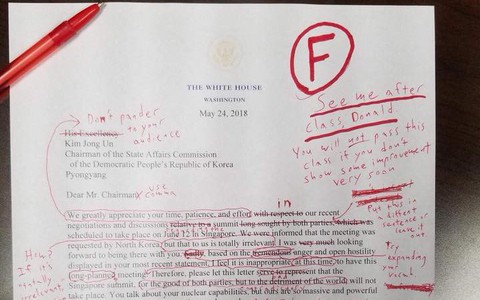 F
See me after
class, Donald.
You will not pass this
class if you don't
show some improvement
very soon
THE WHITE HOUSE
WASHINGTON
May 24, 2018
Don't pander
to your
audience
His Excellency
Kim Jong Un
Chairman of the State Affairs Commission
of the Democratic People's Republic of Korea
Pyongyang
Dear Mr. Chairman
use
comma
in
We greatly appreciate your time, patience, and effort with respect to our recent
negotiations and discussions relative to a summit long sought by both parties, which was
scheduled to take place on June 12 in Singapore. We were informed that the meeting was
requested by North Korea, but that to us is totally irrelevant. I was very much looking
forward to being there with you. Sadly, based on the tremendous anger and open hostility
displayed in your most recent statement, I feel it is inappropriate, at this time, to have this
long-planned meeting. Therefore, please let this letter serve to represent that the
Singapore summit, for the good of both parties, but to the detriment of the world, will not
take place. You talk about your nuclear capabilities, but ours are so massive and powerful
Put this
in a different
sentence or leave
it out
Try
expanding
your
vocab
How?
If it's
totally
irrelevant,